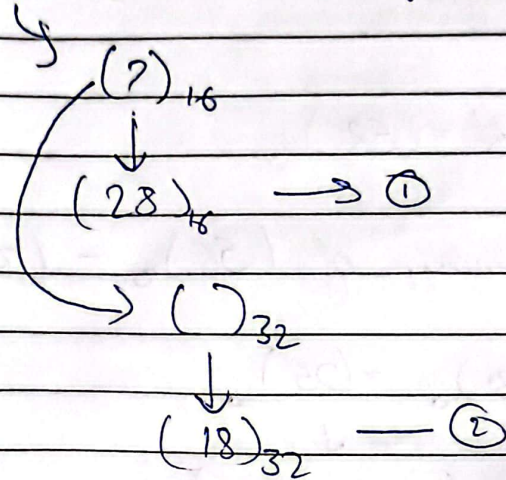 (?)₁₆
↓
(28)₁₆ → ①
( )₃₂
↓
(18)₃₂ — ②